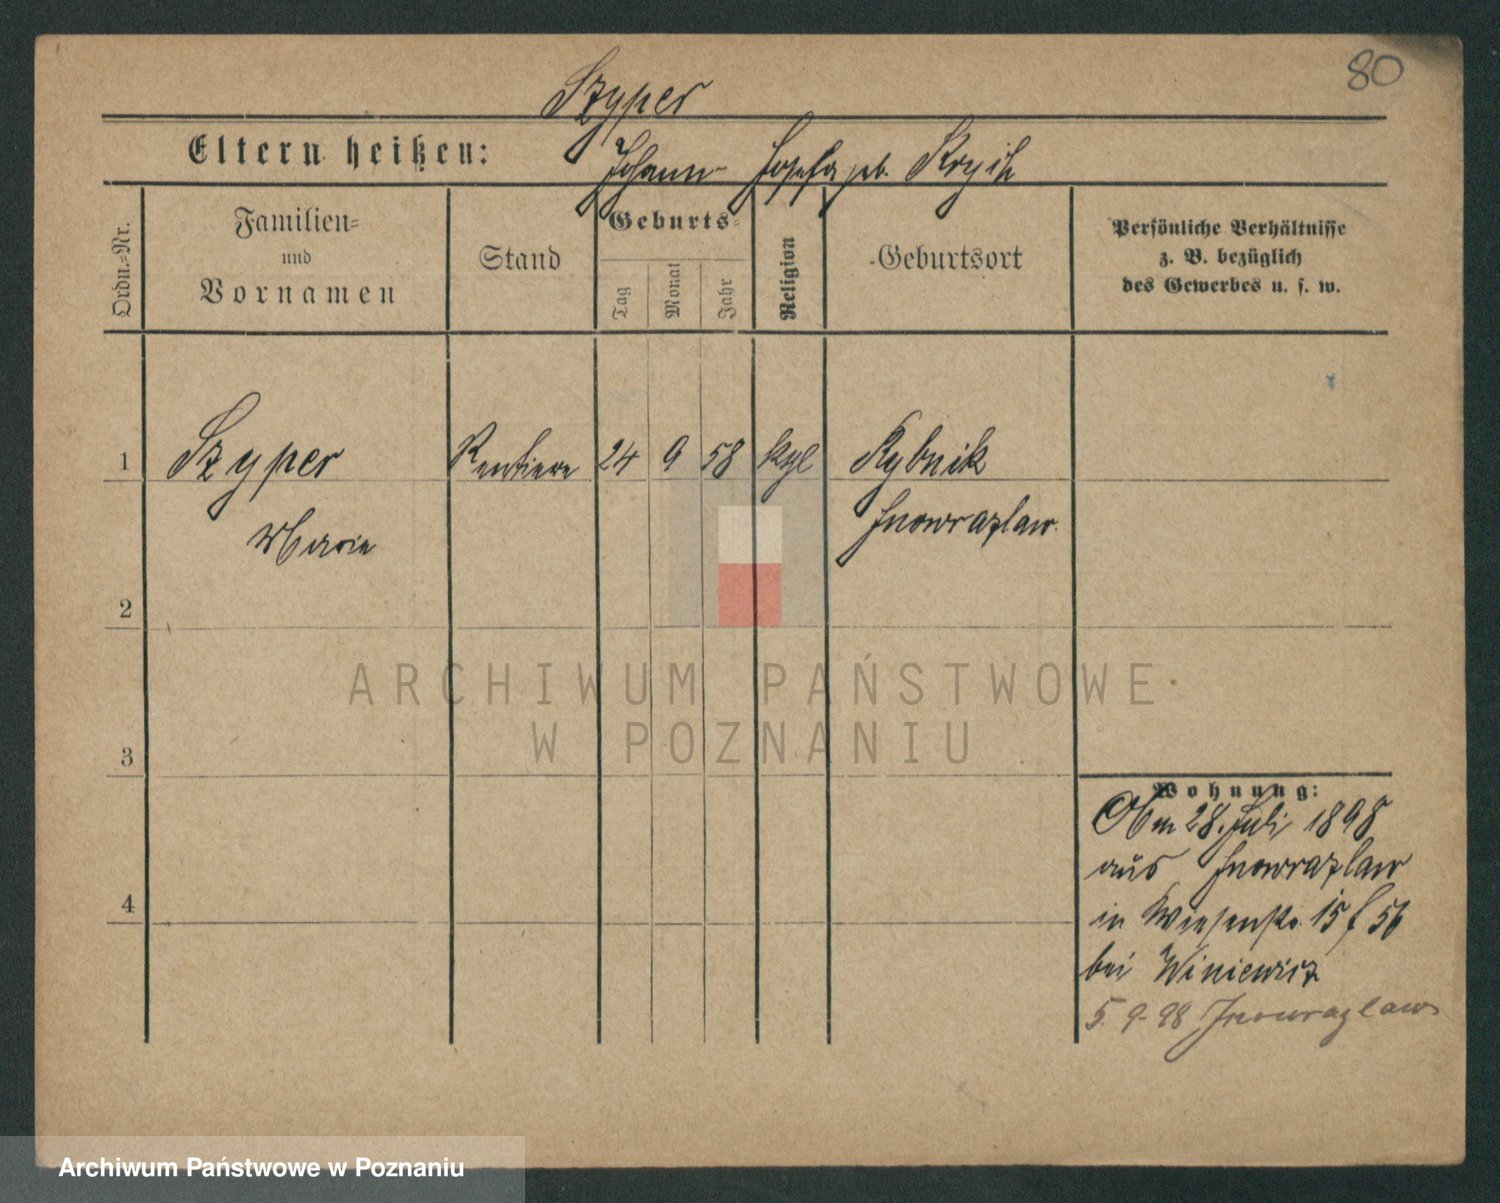 80
Szyper
Eltern heißen:
Johann Josefa geb.
Ordn.-Nr.
Familien-
und
Vornamen
Stand
Geburts-
Tag
Monat
Jahr
Religion
Geburtsort
Persönliche Verhältnisse
z. B. bezüglich
des Gewerbes u. s. w.
1
Szyper
Rentiere
24
9
58
Rybnik
Marie
Inowrazlaw.
2
3
4
ARCHIWUM PAŃSTWOWE
W POZNANIU
Wohnung:
28. Juli 1898
aus Inowrazlaw
in Wiesenstr. 15 f 56
bei Winiewicz
5. 9. 98 Inowrazlaw
Archiwum Państwowe w Poznaniu